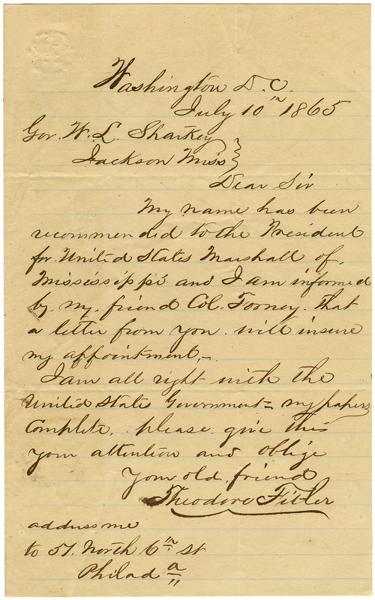 Washington D.C.
July 10th 1865
Gov. W. L. Sharkey
Jackson Miss
Dear Sir
My name has been
recommended to the President
for United States Marshall of
Mississippi and I am informed
by my friend Col. Torney that
a letter from you will insure
my appointment.
I am all right with the
United State Government my papers
Complete please give this
your attention and oblige
your old friend
Theodore Fitler
address me
to 51 North 6th St
Philad a